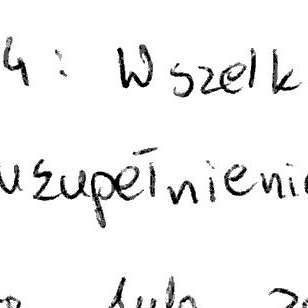 4: Wszelk
uzupełnieni
lub